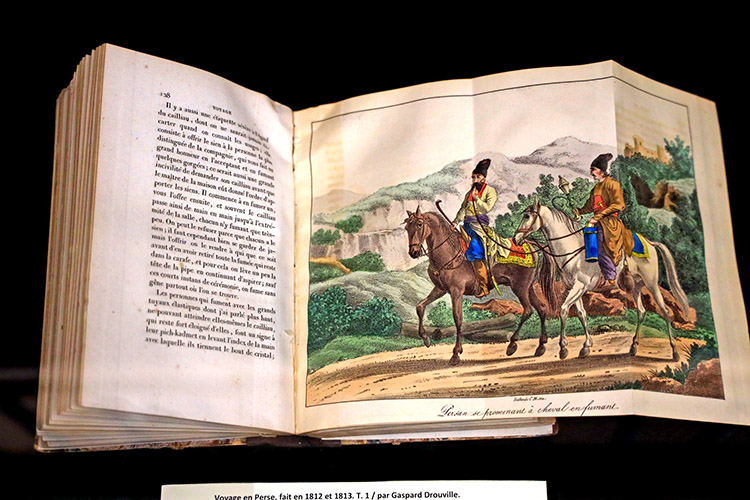 128
VOYAGE
Il y a aussi une étiquette
du cailliau, dont on ne saurait
carter quand on connaît les
consiste à offrir le sien à la personne la plus
distinguée de la compagnie, qui vous fait un
grand honneur en l'acceptant et en fumant
quelques gorgées; ce serait aussi une grande
incivilité de demander son cailliau avant que
le maître de la maison eût donné l'ordre d'ap-
porter les siens. Il commence à en fumer un,
vous l'offre ensuite, et souvent le cailliau
passe ainsi de main en main jusqu'à l'extré-
mité de la salle, chacun n'y fumant que très-
peu. On peut le refuser parce que chacun a le
sien; il faut cependant bien se garder de ja-
mais l'offrir ou le rendre à qui que ce soit
avant d'en avoir retiré toute la fumée qui reste
dans la carafe, et pour cela on lève un peu la
tête de la pipe en continuant d'aspirer; sauf
ces courts instans de cérémonie, on fume sans
gêne partout où l'on se trouve.
Les personnes qui fument avec les grands
tuyaux élastiques dont j'ai parlé plus haut,
ne pouvant atteindre elles-mêmes le cailliau,
qui reste fort éloigné d'elles, font un signe à
leur pich-kadmet en levant l'index de la main
avec laquelle ils tiennent le bout de cristal;
Persan se promenant à cheval en fumant
Voyage en Perse, fait en 1812 et 1813. T. 1 / par Gaspard Drouville.